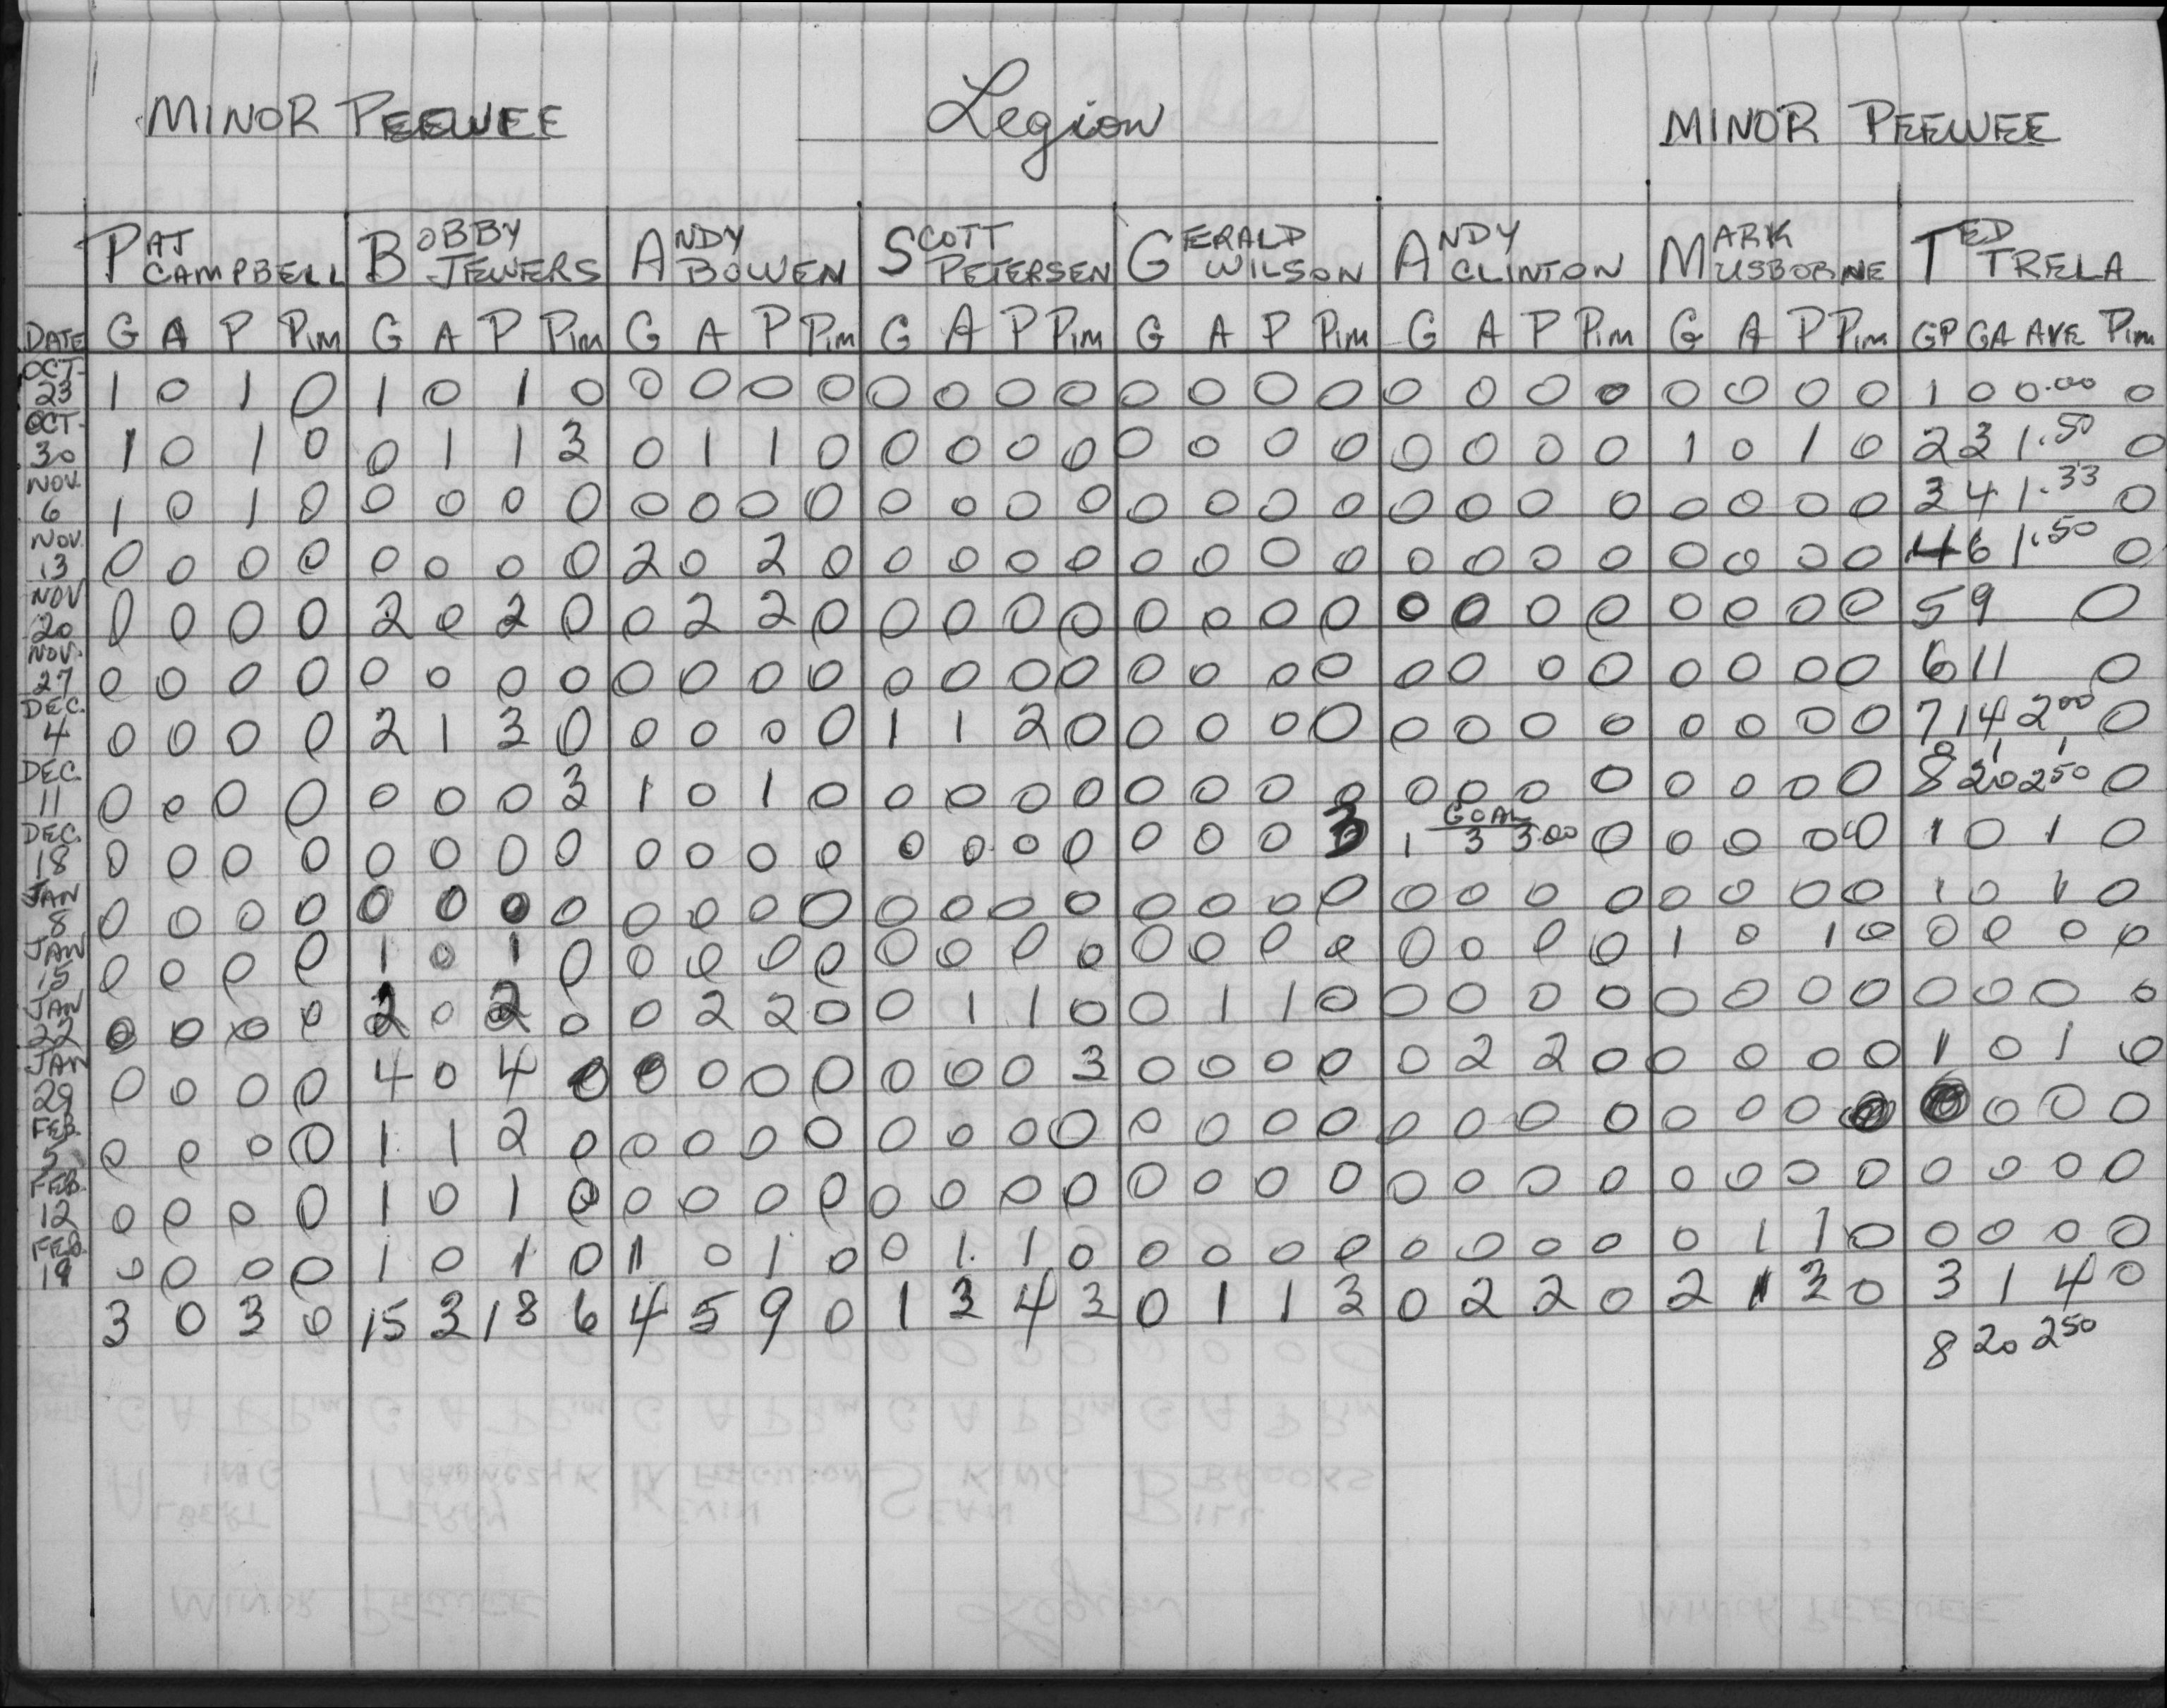 MINOR PEEWEE Legion MINOR PEEWEE
PAT CAMPBELL BOBBY JEWERS ANDY BOWEN SCOTT PETERSEN GERALD WILSON ANDY CLINTON MARK USBORNE TED TRELA
DATE G A P Pim G A P Pim G A P Pim G A P Pim G A P Pim G A P Pim G A P Pim GP GA AVE Pim
OCT- 23 1 0 1 0 1 0 1 0 0 0 0 0 0 0 0 0 0 0 0 0 0 0 0 0 0 0 0 0 1 0 0.00 0
OCT- 30 1 0 1 0 0 1 1 3 0 1 1 0 0 0 0 0 0 0 0 0 0 0 0 0 1 0 1 0 2 3 1.50 0
NOV. 6 1 0 1 0 0 0 0 0 0 0 0 0 0 0 0 0 0 0 0 0 0 0 0 0 0 0 0 0 3 4 1.33 0
NOV. 13 0 0 0 0 0 0 0 0 2 0 2 0 0 0 0 0 0 0 0 0 0 0 0 0 0 0 0 0 4 6 1.50 0
NOV 20 0 0 0 0 2 0 2 0 0 2 2 0 0 0 0 0 0 0 0 0 0 0 0 0 0 0 0 0 5 9 0
NOV. 27 0 0 0 0 0 0 0 0 0 0 0 0 0 0 0 0 0 0 0 0 0 0 0 0 0 0 0 0 6 11 0
DEC. 4 0 0 0 0 2 1 3 0 0 0 0 0 1 1 2 0 0 0 0 0 0 0 0 0 0 0 0 0 7 14 2.00 0
0 1 1
DEC. 11 0 0 0 0 0 0 0 3 1 0 1 0 0 0 0 0 0 0 0 0 0 0 0 0 0 0 0 0 8 20 2.50 0
GOAL
DEC. 18 0 0 0 0 0 0 0 0 0 0 0 0 0 0 0 0 0 0 0 3 1 3 3.00 0 0 0 0 0 1 0 1 0
JAN 8 0 0 0 0 0 0 0 0 0 0 0 0 0 0 0 0 0 0 0 0 0 0 0 0 0 0 0 0 1 0 1 0
JAN 15 0 0 0 0 1 0 1 0 0 0 0 0 0 0 0 0 0 0 0 0 0 0 0 0 1 0 1 0 0 0 0 0
JAN 22 0 0 0 0 2 0 2 0 0 2 2 0 0 1 1 0 0 1 1 0 0 0 0 0 0 0 0 0 0 0 0 0
JAN 29 0 0 0 0 4 0 4 0 0 0 0 0 0 0 0 3 0 0 0 0 0 2 2 0 0 0 0 0 1 0 1 0
FEB. 5 0 0 0 0 1 1 2 0 0 0 0 0 0 0 0 0 0 0 0 0 0 0 0 0 0 0 0 0 0 0 0 0
FEB. 12 0 0 0 0 1 0 1 0 0 0 0 0 0 0 0 0 0 0 0 0 0 0 0 0 0 0 0 0 0 0 0 0
FEB. 19 0 0 0 0 1 0 1 0 1 0 1 0 0 1 1 0 0 0 0 0 0 0 0 0 0 1 1 0 0 0 0 0
3 0 3 0 15 3 18 6 4 5 9 0 1 3 4 3 0 1 1 3 0 2 2 0 2 1 3 0 3 1 4 0
8 20 2.50